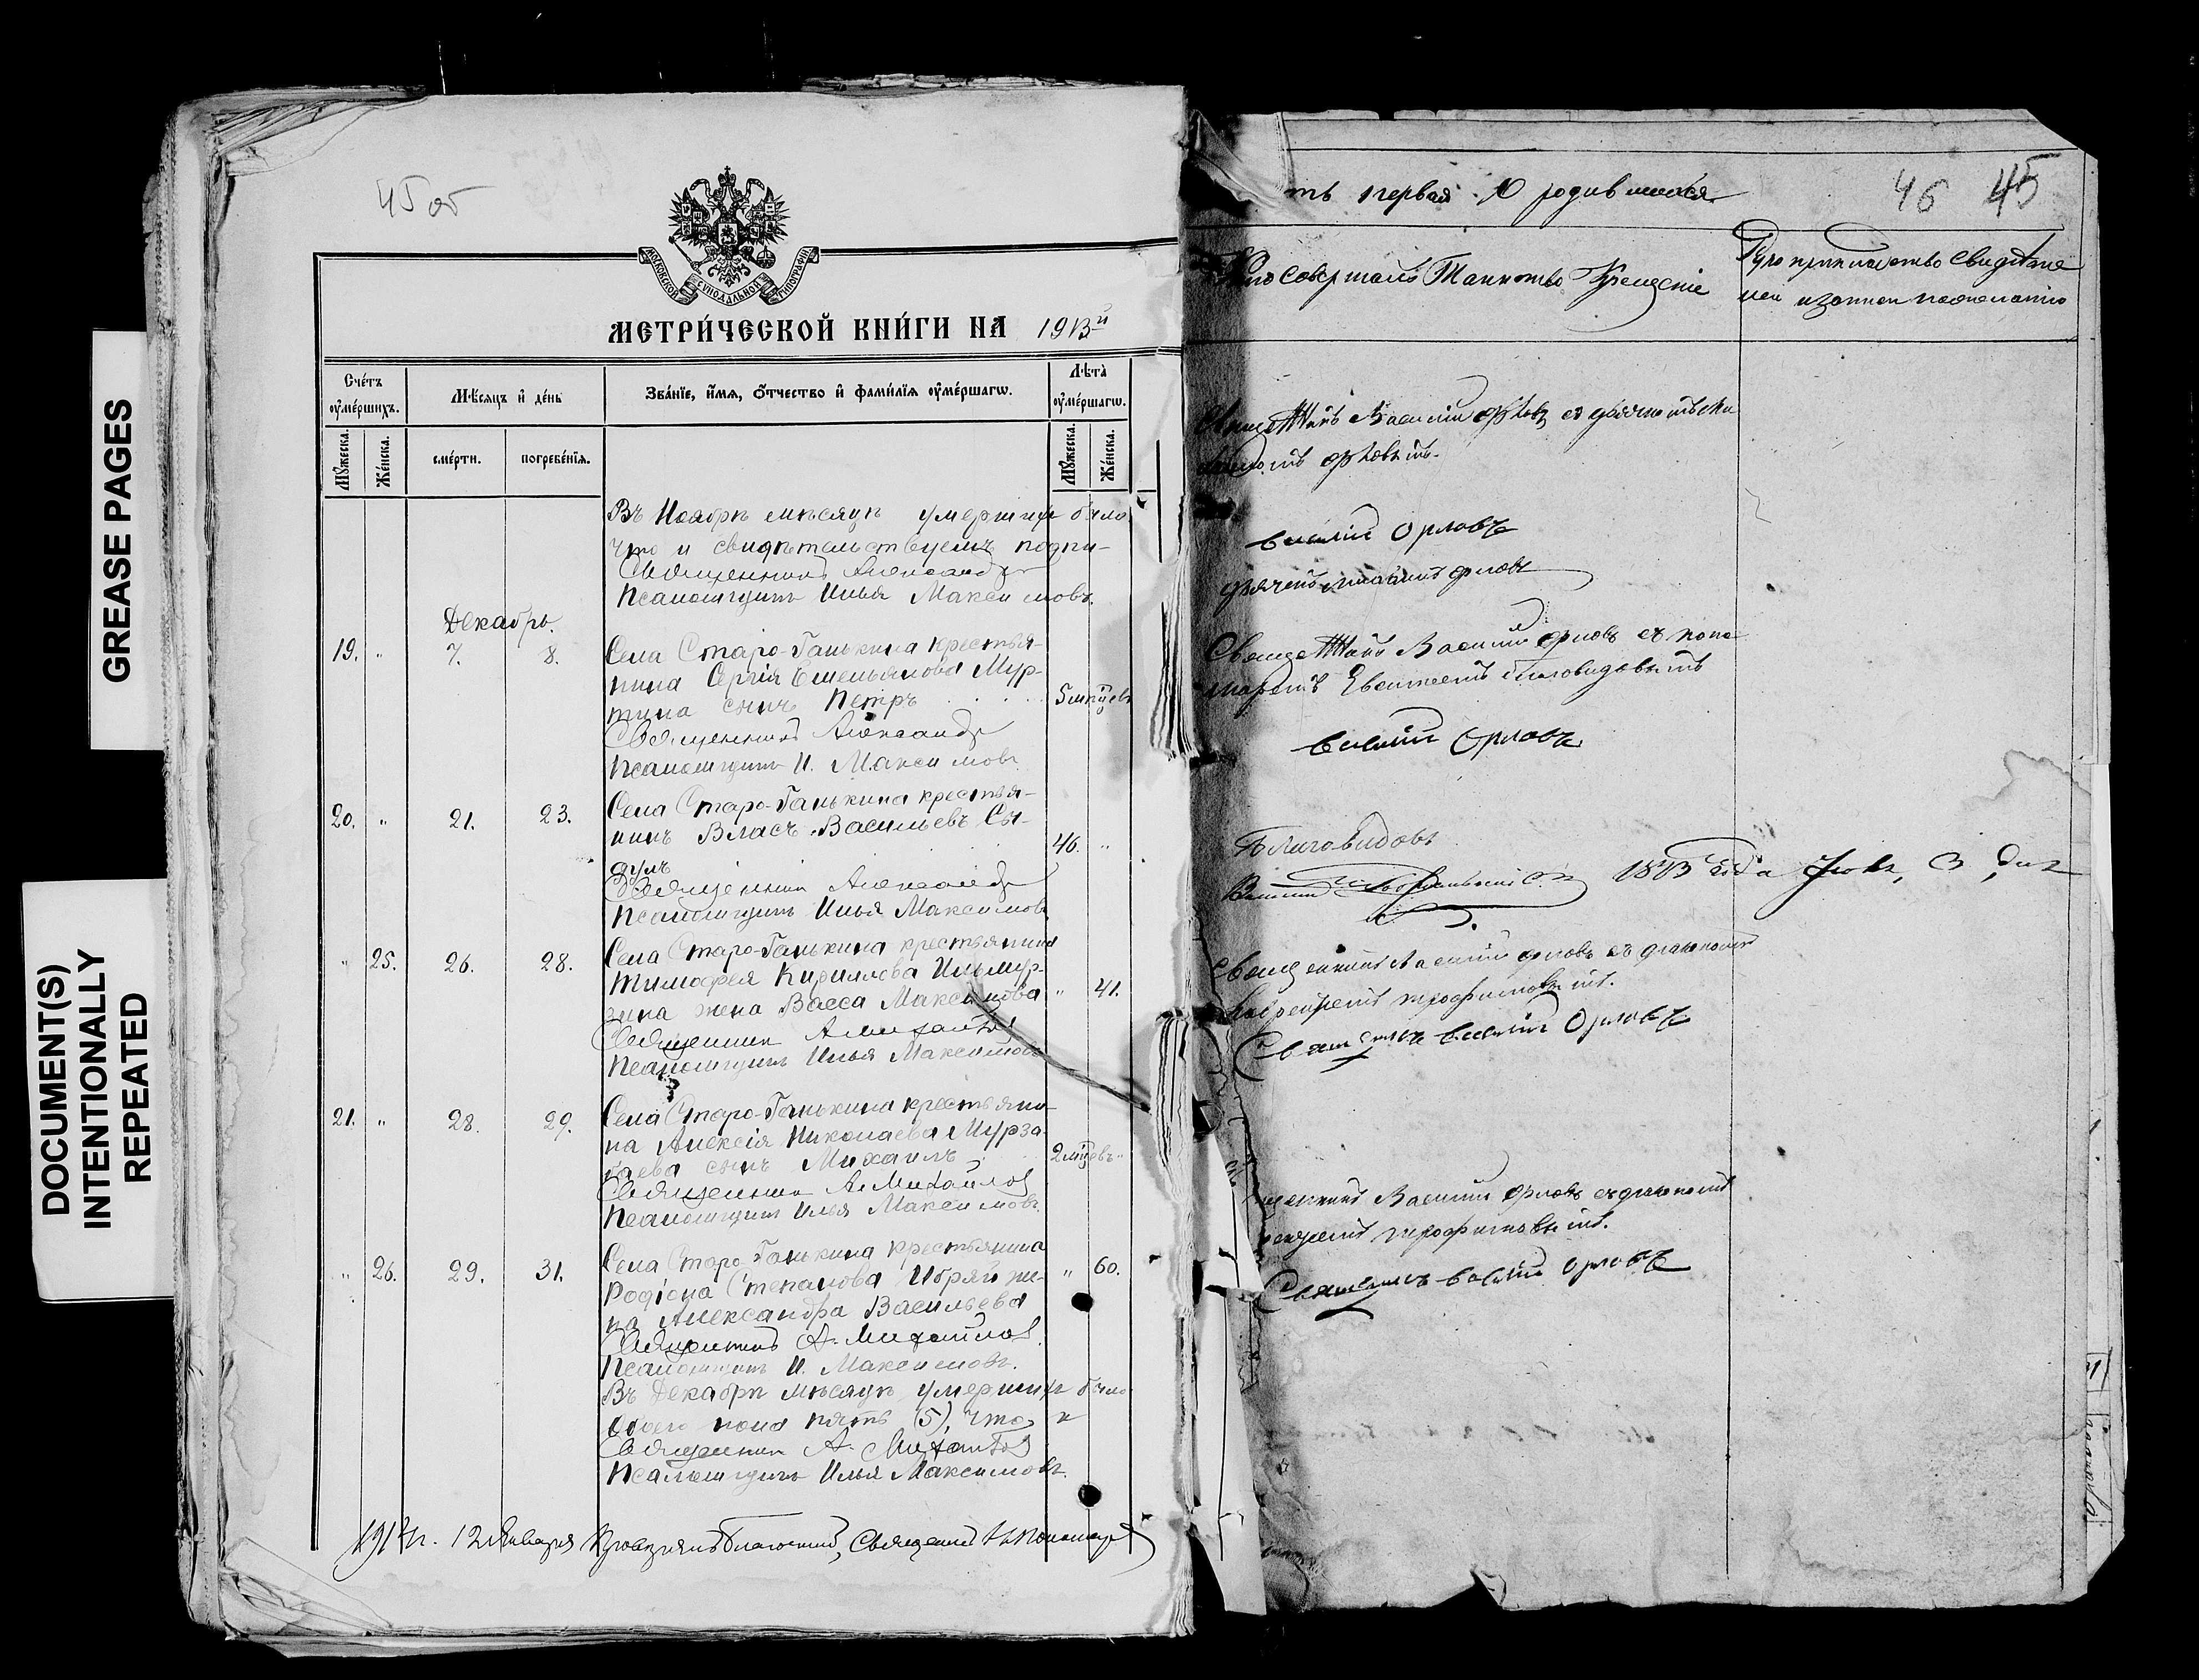 GREASE PAGES
DOCUMENT(S)
INTENTIONALLY
REPEATED
45 об
МОСКОВСКОЙ СѴНОДАЛЬНОЙ ТИПОГРАФІИ
МЕТРИ́ЧЕСКОЙ КНИ́ГИ НА 1913й
Сче́тъ оу҆ме́ршихъ.
Мѣ́сяцъ и҆ де́нь
Зва́нїе, и҆́мя, ѻ҆́тчество и҆ фами́лїя оу҆ме́ршагѡ.
Лѣта̀ оу҆ме́ршагѡ.
Мꙋ́жеска.
Же́нска.
сме́рти.
погребе́нїя.
Мꙋ́жеска.
Же́нска.
Въ Ноябрѣ мѣсяцѣ умершихъ было
что и свидѣтельствуемъ подпи-
Священникъ Александр
Псаломщикъ Илья Максимовъ.
Декабрь.
19. " 7. 8. Села Старо-Ганькина крестья-
нина Сергія Емельянова Мур-
тина сынъ Петръ 5 мѣцевъ
Священникъ Александр
Псаломщикъ И. Максимовъ
20. " 21. 23. Села Старо-Ганькина крестья-
нинъ Власъ Васильевъ Сы-
дулъ 46. "
Священникъ Александр
Псаломщикъ Илья Максимовъ
" 25. 26. 28. Села Старо-Ганькина крестьянина
Тимофея Кириллова Ильмур-
зина жена Васса Максимова " 41.
Священник А Михайлов
Псаломщикъ Илья Максимовъ
21. " 28. 29. Села Старо-Ганькина крестьяни-
на Алексія Николаева Мурза-
баева сынъ Михаилъ 2 мѣцевъ "
Священник А. Михайлов
Псаломщикъ Илья Максимовъ.
" 26. 29. 31. Села Старо-Ганькина крестьянина
Родіона Степанова Ибряй же-
на Александра Васильева " 60.
Священникъ А. Михайлов
Псаломщикъ И. Максимовъ.
Въ Декабрѣ мѣсяцѣ умершихъ было
обоего пола пять (5), что и
Священник А. Михайлов
Псаломщикъ Илья Максимовъ.
1914 г. 12 Января Благочинный, Священникъ
ть первая О родившихся 46 45
Кто совершалъ Таинство Крещенія
Рукоприкладство свидѣте
лей
Василій Орловъ
Василій Орловъ
Священникъ Василій Орловъ съ поно
маремъ Благовидовымъ
Василій Орловъ
Благовидовъ
1843 года 3 дня
Священникъ Василій Орловъ съ дьякономъ
Трофимовымъ.
Священникъ Василій Орловъ
щенникъ Василій Орловъ съ дьякономъ
Трофимовымъ.
Священникъ Василій Орловъ